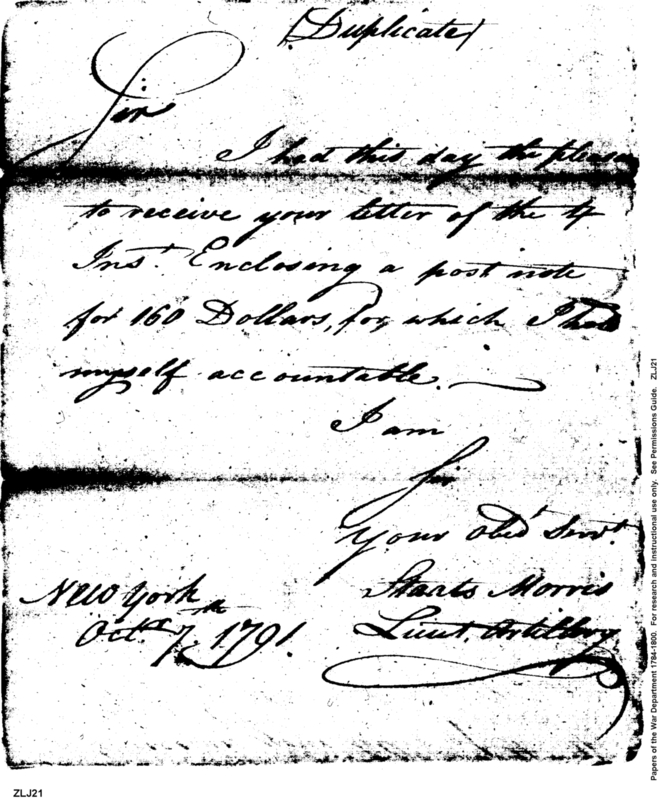 (Duplicate)
Sir
I had this day the pleasure
to receive your letter of the 4
Inst. Enclosing a post note
for 160 Dollars, for which I hold
myself accountable.
I am
Sir
Your Obedt Servt.
Staats Morris
Lieut. Artillery
New York
Octr. 7th 1791.
Papers of the War Department 1784-1800. For research and instructional use only. See Permissions Guide. ZLJ21
ZLJ21